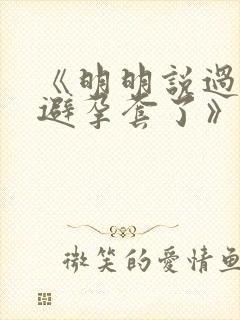 《明明說過
避孕套了》
微笑的愛情魚